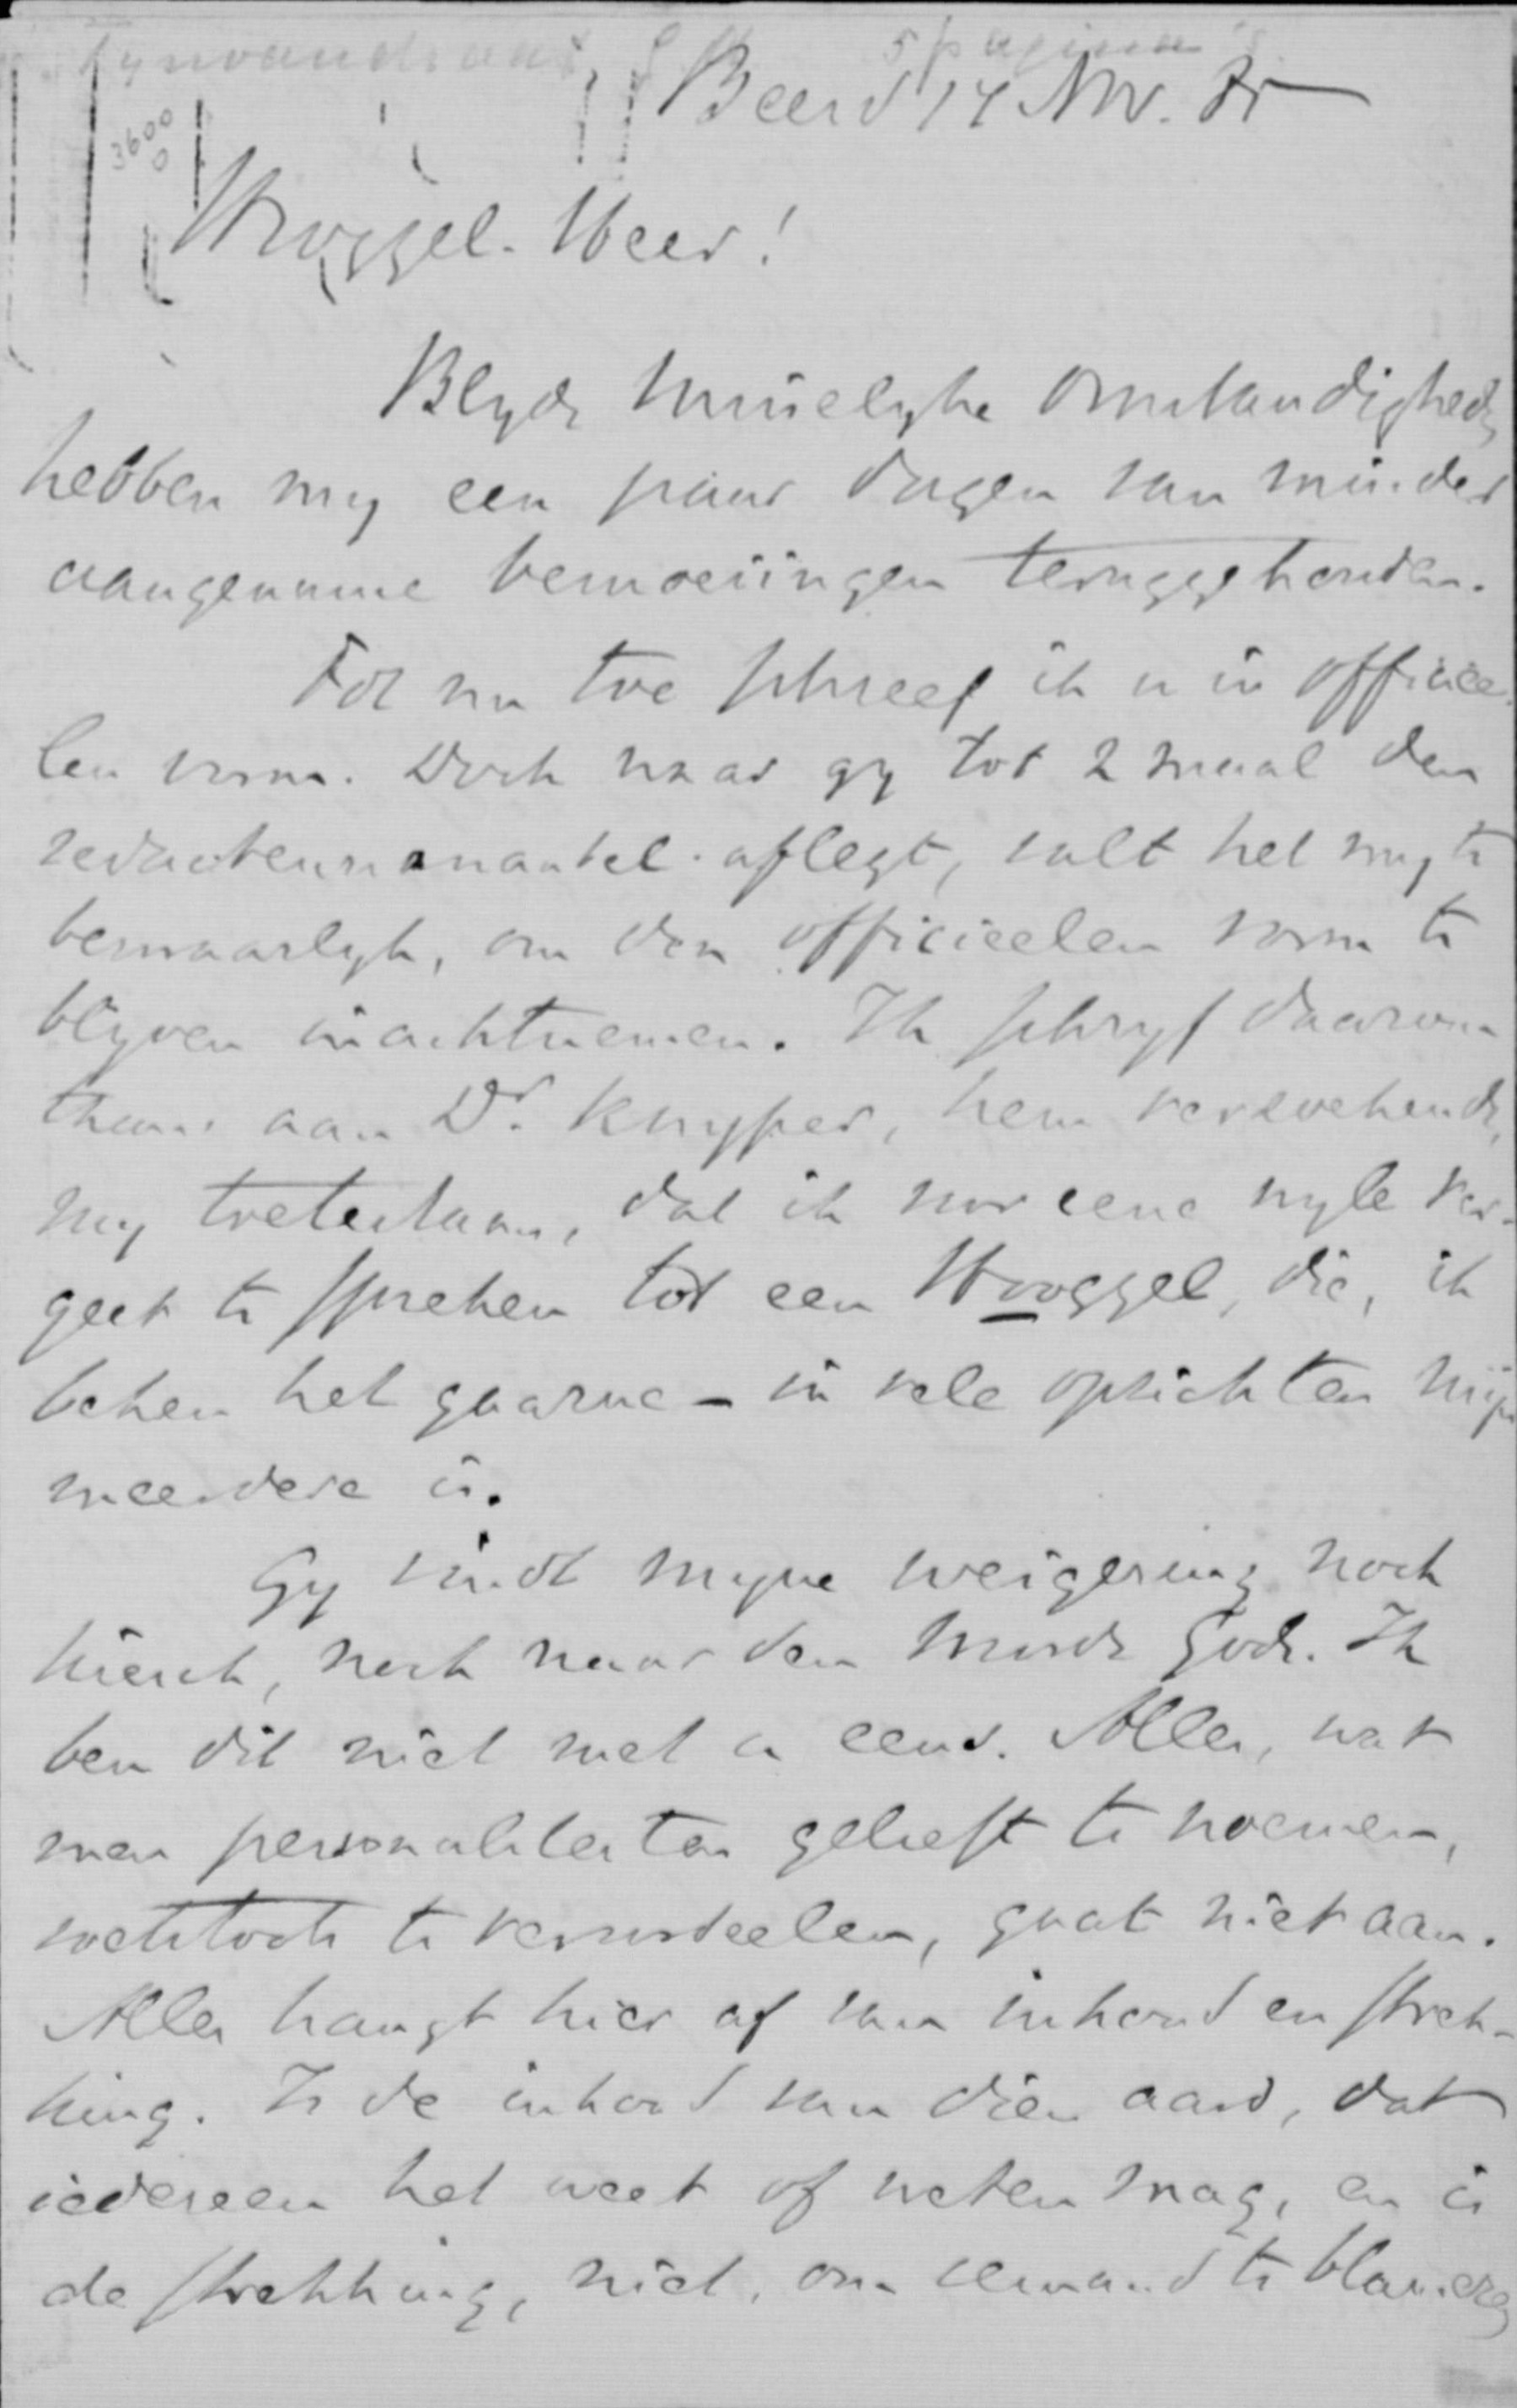 5 pagina's
Beers 14 Nov. 85
3600
0
Hooggel. Heer!
Blyde huiselyke omstandighede
hebben my een paar dagen van minder
aangename bemoeiingen teruggehouden.
Tot nu toe schreef ik u in officiee
len vorm. Doch waar gy tot 2 maal den
redacteursmantel aflegt, valt het my te
bezwaarlyk, om den officieelen vorm te
blyven inachtnemen. Ik schryf daarom
thans aan Dr. Kuyper, hem verzoekende,
my toetestaan, dat ik voor eene wyle ver-
geet te spreken tot een Hooggel, die, ik
beken het gaarne - in vele opzichten mijn
meerdere is.
Gy vindt myne weigering noch
kiesch, noch naar den woorde Gods. Ik
ben dit niet met u eens. Alles, wat
men personaliteiten gelieft te noemen,
te veroordeelen, gaat niet aan.
Alles hangt hier af van inhoud en strek-
king. Is de inhoud van dien aard, dat
iedereen het weet of weten mag, en is
de strekking, niet, om iemand te blameren